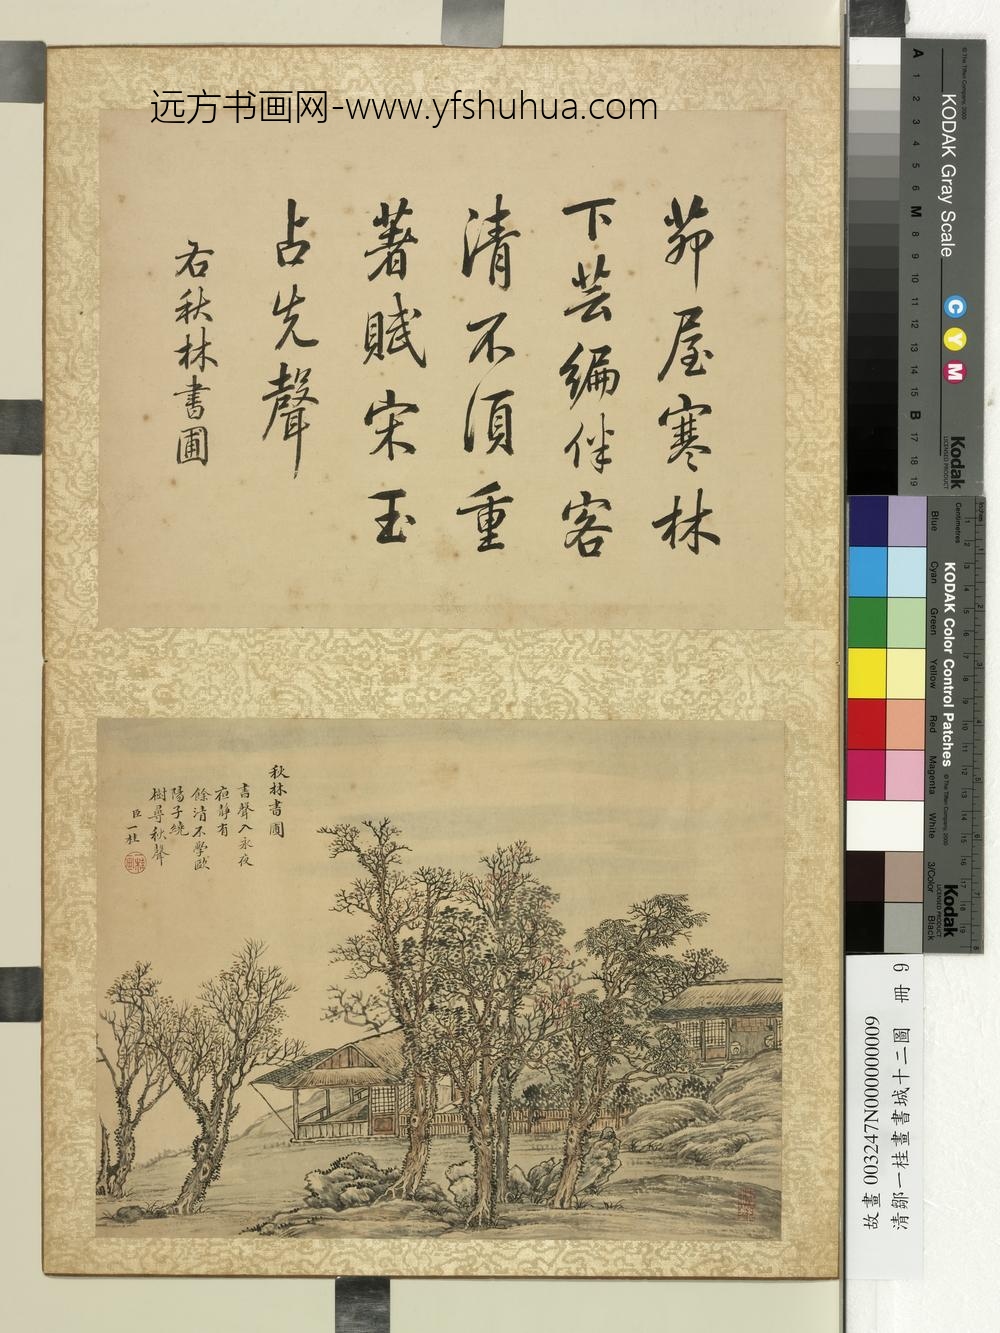 远方书画网-www.yfshuhua.com
茆屋寒林
下芸编伴客
清不須重
著賦宋玉
占先聲
右秋林書圃
秋林書圃
書聲入永夜
夜静有
餘清不學歐
陽子繞
樹尋秋聲
臣一桂
© The Tiffen Company, 2000
KODAK Gray Scale
A 1 2 3 4 5 6 M 8 9 10 11 12 13 14 15 B 17 18 19
C Y M
Kodak
LICENSED PRODUCT
Inches
Centimetres
KODAK Color Control Patches
© The Tiffen Company, 2000
Kodak
LICENSED PRODUCT
Blue
Cyan
Green
Yellow
Red
Magenta
White
3/Color
Black
故畫 003247N000000009
清鄒一桂畫書城十二圖 冊 9